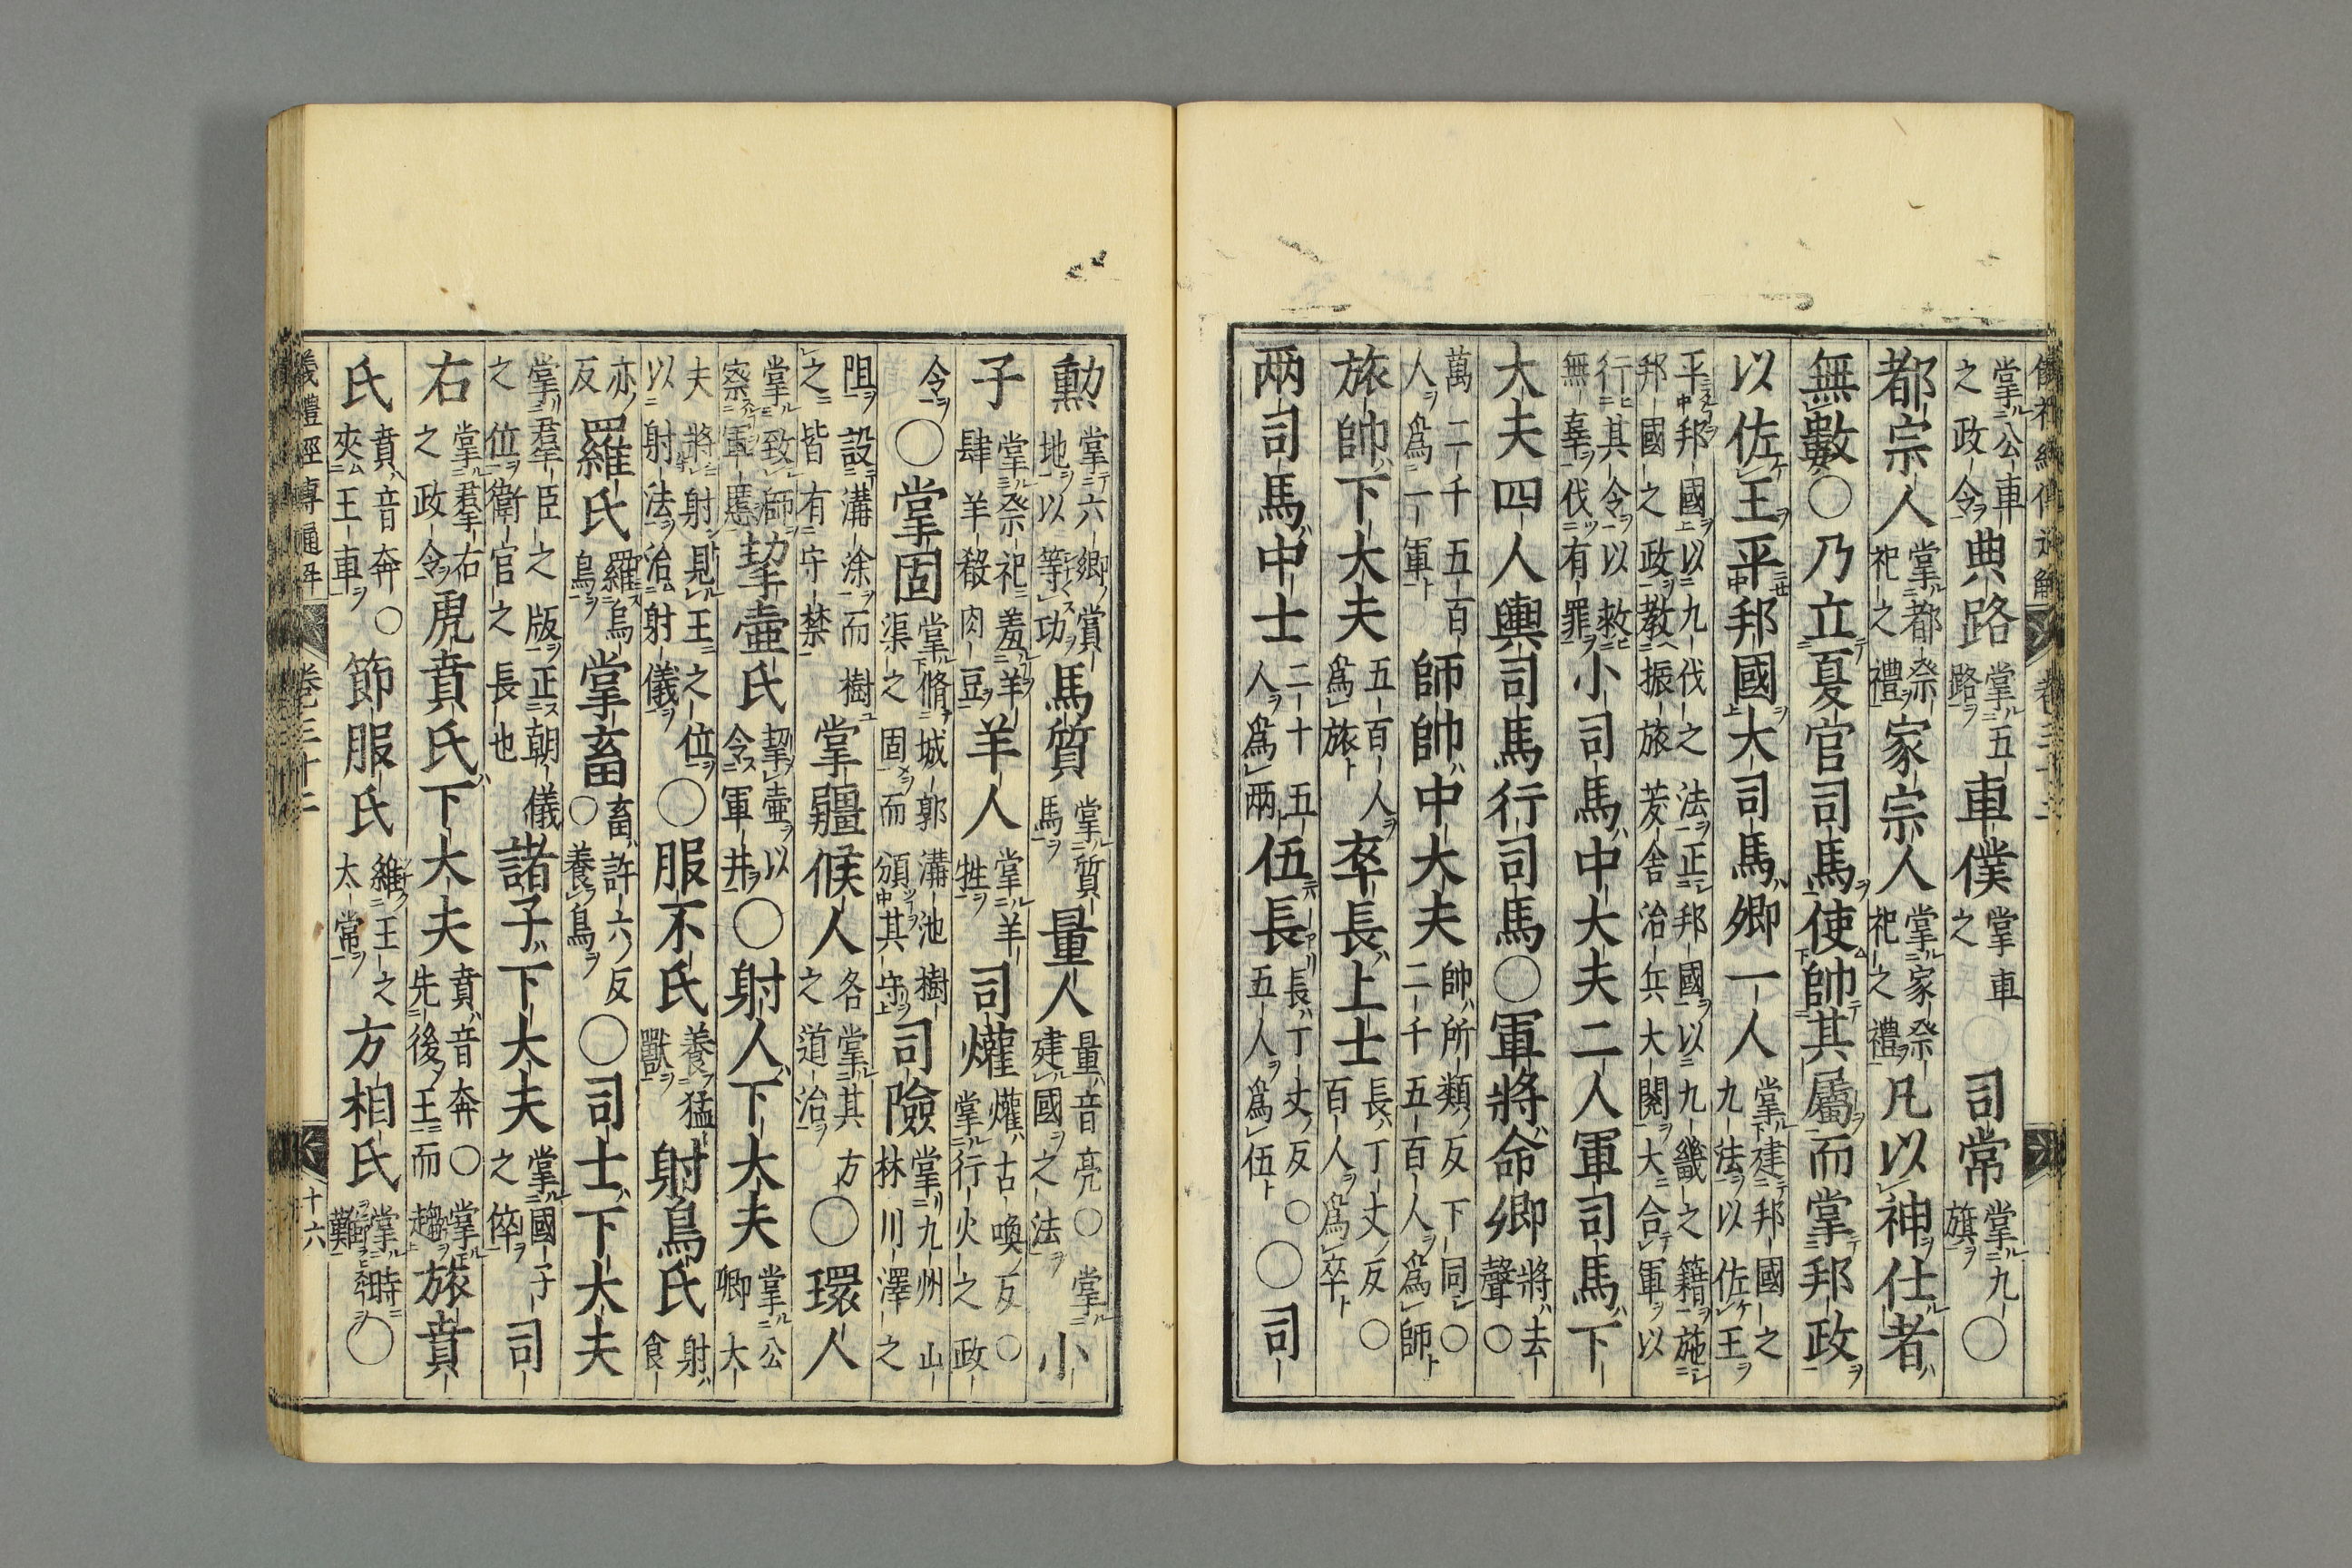 儀禮經傳通解 卷三十二
掌公車之政令典路掌五路車僕掌車之司常掌九旗〇
都宗人掌都祭祀之禮家宗人掌家祭祀之禮凡以神仕者
無數〇乃立夏官司馬使帥其屬而掌邦政
以佐王平邦國大司馬卿一人掌建邦國之九法以佐王
平邦國以九伐之法正邦國以九畿之籍施邦國之政教振旅茇舍治兵大閱大合軍以
行其令以救無辜伐有罪小司馬中大夫二人軍司馬下
大夫四人輿司馬行司馬〇軍將命卿將去聲〇
萬二千五百人爲一軍師帥中大夫帥所類反下同〇二千五百人爲師
旅帥下大夫五百人爲旅卒長上士長丁丈反〇百人爲卒
兩司馬中士二十五人爲兩伍長長丁丈反〇五人爲伍〇司
勳掌六鄉賞地以等功馬質掌質馬量人量音亮〇掌建國之法小
子掌祭祀羞羊肆羊殽肉豆羊人掌羊牲司爟爟古喚反〇掌行火之政
令〇掌固掌脩城郭溝池樹渠之固而頒其守司險掌九州山林川澤之
阻設溝涂而樹之皆有守禁掌疆候人各掌其方之道治〇環人
掌致師察軍慝挈壺氏挈壺以令軍井〇射人下大夫掌公卿大
夫將射見王之位以射法治射儀〇服不氏養猛獸射鳥氏射食
亦反羅氏羅烏鳥掌畜畜許六反〇養鳥〇司士下大夫
掌羣臣之版正朝儀之位衛官之長也諸子下大夫掌國子之倅司
右掌羣右之政令虎賁氏下大夫賁音奔〇掌先後王而趨旅賁
氏賁音奔〇夾王車節服氏維王之太常方相氏掌時難〇
儀禮經傳通解 卷三十二 十六